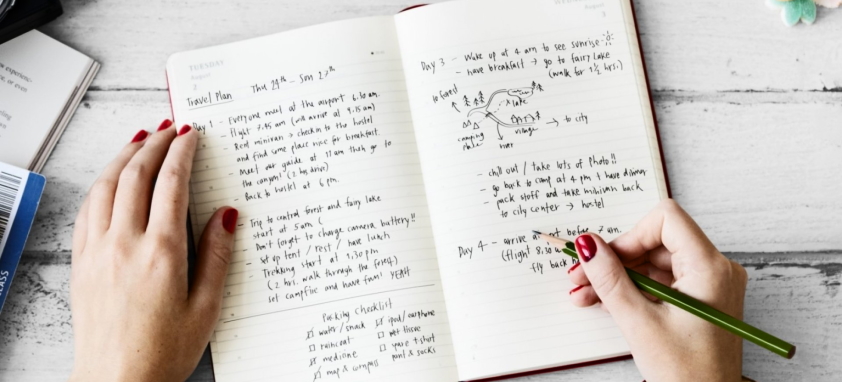 TUESDAY
August
2
Travel Plan Thu 24th - Sun 27th
Day 1 - Everyone meet at the airport 6.30 am.
- Flight 7.45 am (will arrive at 9.15 am)
- Rent minivan > check in to the hostel
and find some place nice for breakfast.
- Meet our guide at 11 am then go to
the canyon! (2 hrs drive)
- Back to hostel at 6 pm.
- Trip to central forest and fairy lake
start at 5 am (
Don't forget to charge camera battery!!
- Set up tent / rest / have lunch
- Trekking start at 1.30 pm
(2 hrs. walk through the forest)
set campfire and have fun! YEAH
Packing Checklist
water/snack
ipod/earphone
raincoat
wet tissue
medicine
map & compass
pant & socks
August
3
Day 3 - Wake up at 4 am to see sunrise
- have breakfast → go to fairy lake
(walk for 1 1/2 hrs.)
to forest
lake
camping place
village
river
→ to city
- chill out / take lots of photo!!
- go back to camp at 4 pm + have dinner
- pack stuff and take minivan back
to city center → hostel
Day 4 - arrive before 7 am.
(flight 8:30
fly back